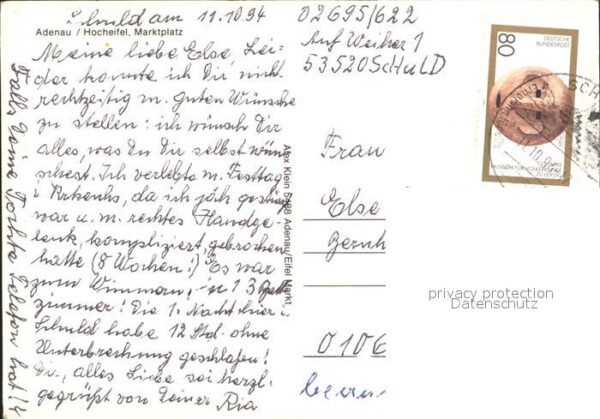 Schuld am 11.10.94
Adenau / Hocheifel, Marktplatz
Meine liebe Else, Lei-
der konnte ich Dir nicht
rechtzeitig m. guten Wünsche
zu stellen: ich wünsch Dir
alles, was Du Dir selbst wün
schest. Ich verlebte m. Festtag
i. Krkenhs, da ich jäh gestürz
war u. m. rechtes Handge-
lenk, kompliziert gebrochen
hatte (8 Wochen!) Es war
zum Wimmern, in 1 3
zimmer! Die 1. Nacht hier i.
Schuld habe 12 Std. ohne
Unterbrechung geschlafen!
Dir, alles Liebe sei herzl.
gegrüßt von Deiner Ria
Falls Deine Tochter Telefon hat!
Alex Klein 5488 Adenau/Eifel Markt.
02695/622
Auf Weiher 1
53520 SCHULD
DEUTSCHE
BUNDESPOST
80
Frau
Else
Gernh
0106
privacy protection
Datenschutz